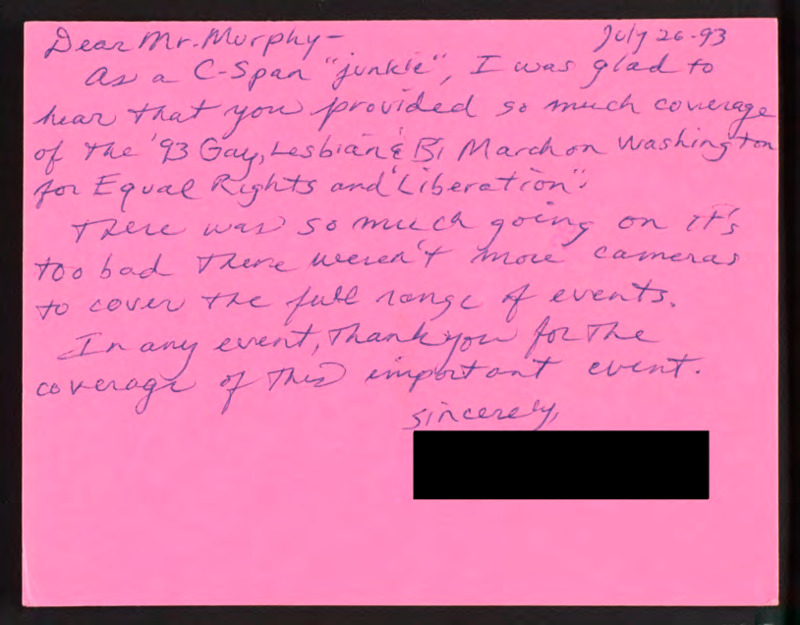 Dear Mr. Murphy- July 26-93
As a C-Span "junkie", I was glad to
hear that you provided so much coverage
of the '93 Gay, Lesbian & Bi March on Washington
for Equal Rights and "Liberation".
There was so much going on it's
too bad there weren't more cameras
to cover the full range of events.
In any event, thank you for the
coverage of this important event.
sincerely,